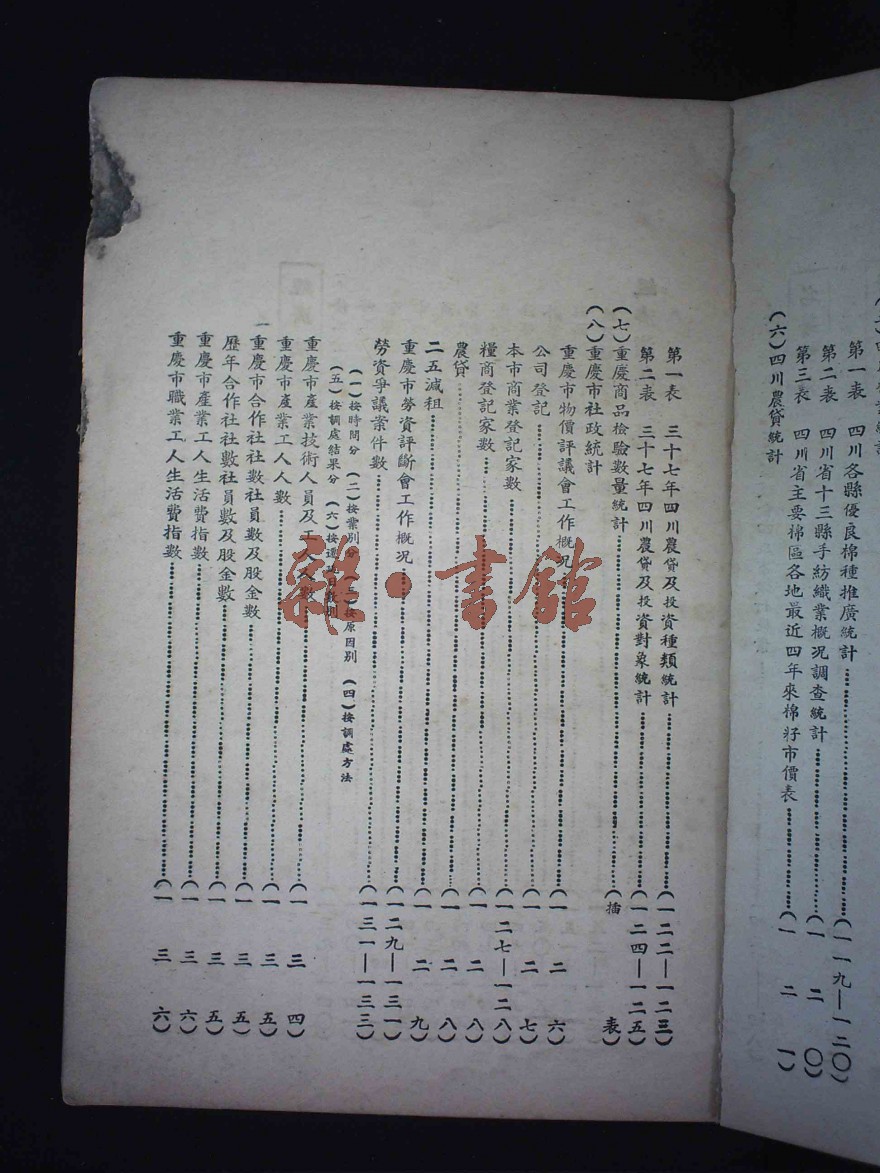 第一表 四川各縣優良棉種推廣統計……(一一九—一二〇)
第二表 四川省十三縣手紡織業概況調查統計……(一二〇)
第三表 四川省主要棉區各地最近四年來棉籽市價表……(一二一)
(六)四川農貸統計
第一表 三十七年四川農貸及投資種類統計……(一二二—一二三)
第二表 三十七年四川農貸及投資對象統計……(一二四—一二五)
(七)重慶商品檢驗數量統計……(插表)
(八)重慶市社政統計
重慶市物價評議會工作概況……(一二六)
公司登記……(一二七)
本市商業登記家數……(一二七—一二八)
糧商登記家數……(一二八)
農貸……(一二八)
二五減租……(一二九)
重慶市勞資評斷會工作概況……(一二九—一三一)
勞資爭議案件數……(一三一—一三三)
(一)按時間分 (二)按業別分 (三)按原因別 (四)按調處方法
(五)按調處結果分 (六)按 日數別
重慶市產業技術人員及工人人數……(一三四)
重慶市產業工人人數……(一三五)
重慶市合作社社數社員數及股金數……(一三五)
歷年合作社社數社員數及股金數……(一三五)
重慶市產業工人生活費指數……(一三六)
重慶市職業工人生活費指數……(一三六)
雜·書館